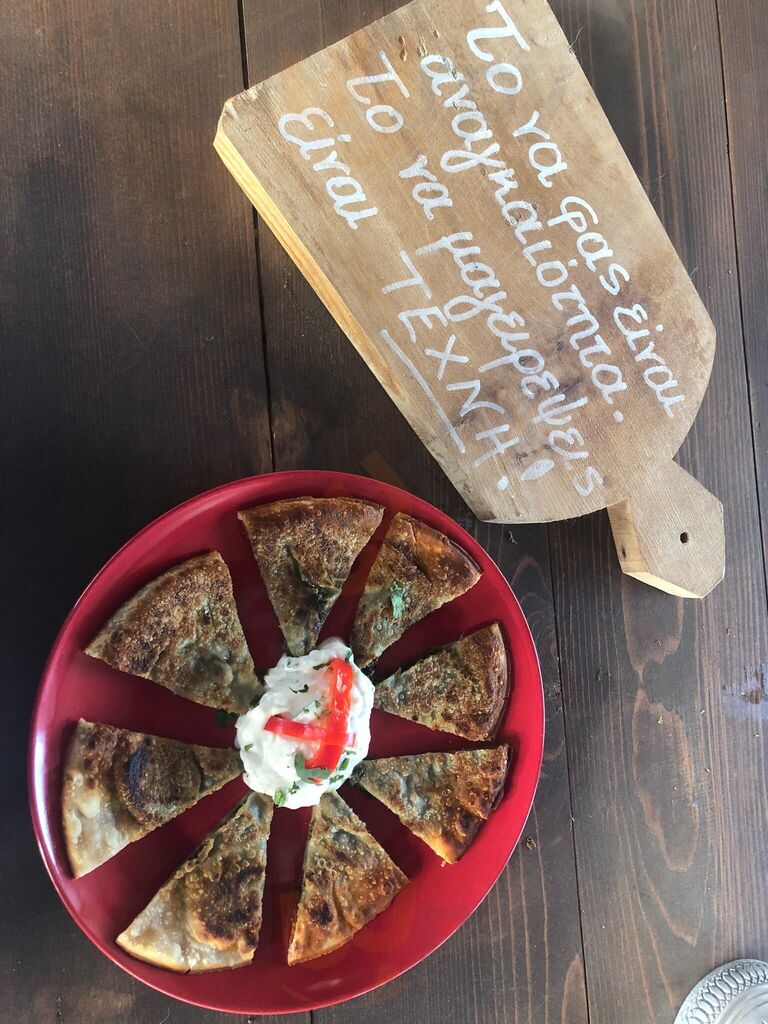 Το να φας είναι
αναγκαιότητα.
Το να μαγειρεψεις
είναι ΤΕΧΝΗ!